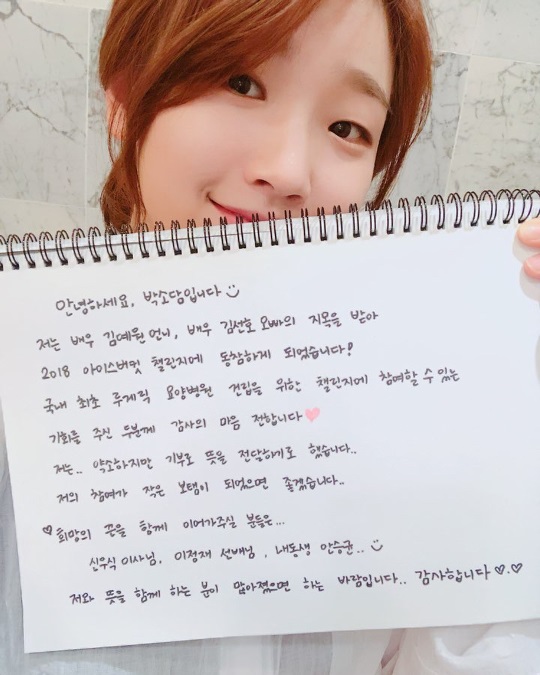 안녕하세요, 박소담입니다 :)
저는 배우 김예원 언니, 배우 김선호 오빠의 지목을 받아
2018 아이스버킷 챌린지에 동참하게 되었습니다!
국내 최초 루게릭 요양병원 건립을 위한 챌린지에 참여할 수 있는
기회를 주신 두분께 감사의 마음 전합니다
저는.. 약소하지만 기부로 뜻을 전달하기로 했습니다..
저의 참여가 작은 보탬이 되었으면 좋겠습니다..
♡희망의 끈을 함께 이어가주실 분들은...
신우식 이사님, 이정재 선배님, 내동생 안승균.. :)
저와 뜻을 함께 하는 분이 많아졌으면 하는 바람입니다.. 감사합니다 ♡.♡